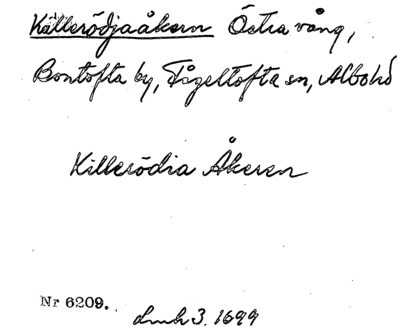 Källerödjaåkern Östra vång,
Bontofta by, Fågeltofta sn, Albo hd
Killerödia Åkeren
Nr 6209.
dmk 3. 1699